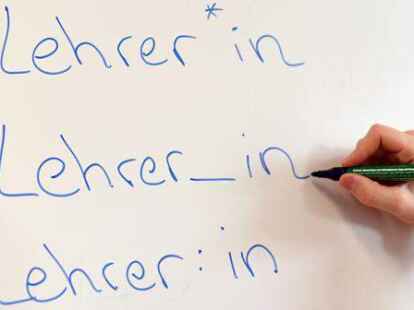 Lehrer*in
Lehrer_in
Lehrer:in